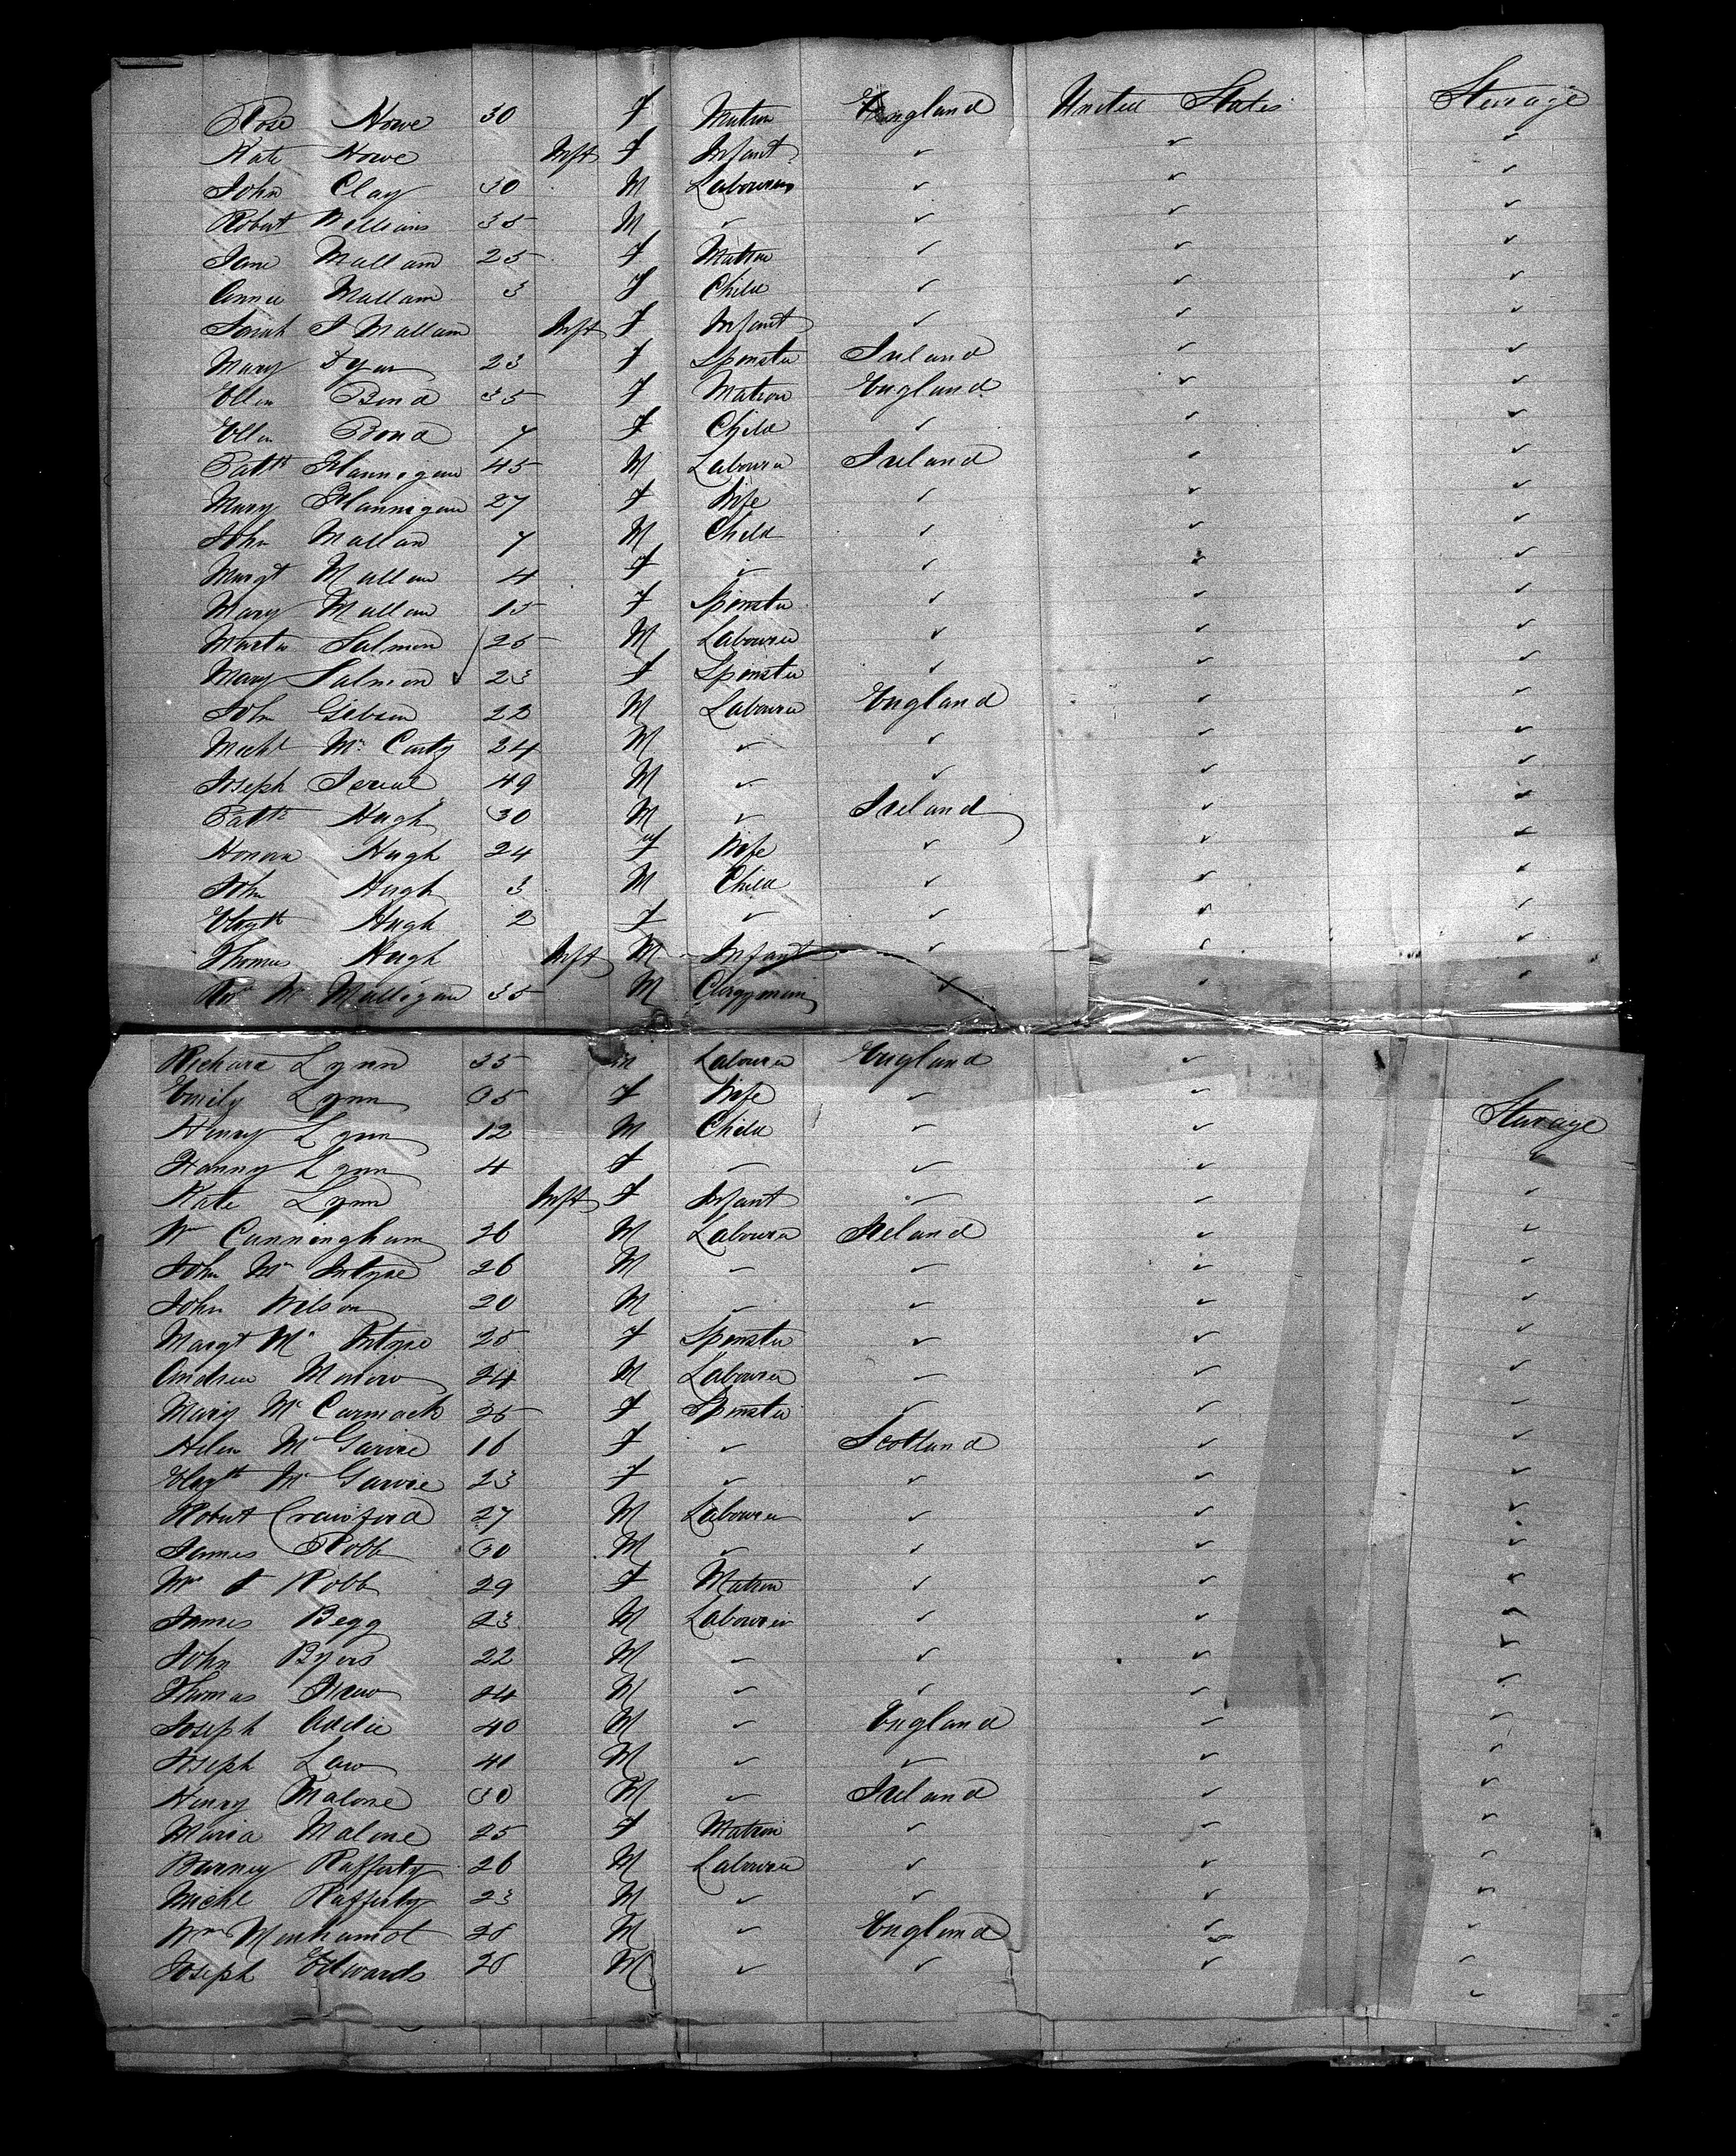 Rose Howe 30 F Matron England United States Steerage
Kate Howe Inft F Infant ✓ ✓ ✓
John Clay 30 M Labourer ✓ ✓ ✓
Robert Williams 35 M ✓ ✓ ✓ ✓
Jane Mallam 25 F Matron ✓ ✓ ✓
Annie Mallam 3 F Child ✓ ✓ ✓
Sarah J Mallam Inft F Infant ✓ ✓ ✓
Mary 23 F Spinster Ireland ✓ ✓
Ellen Bond 35 F Matron England ✓ ✓
Ellen Bond 7 F Child ✓ ✓ ✓
Patk Flannigan 45 M Labourer Ireland ✓ ✓
Mary Flannigan 27 F Wife ✓ ✓ ✓
John Mullan 7 M Child ✓ ✓ ✓
Margt Mullan 4 F ✓ ✓ ✓ ✓
Mary Mullan 15 F Spinster ✓ ✓ ✓
Martin Salmon 25 M Labourer ✓ ✓ ✓
Mary Salmon ✓ 23 F Spinster ✓ ✓ ✓
John Gibson 22 M Labourer England ✓ ✓
Michl Mc Carty 24 M ✓ ✓ ✓ ✓
Joseph 49 M ✓ ✓ ✓ ✓
Patk Hugh 30 M ✓ Ireland ✓ ✓
Honora Hugh 24 F Wife ✓ ✓ ✓
John Hugh 3 M Child ✓ ✓ ✓
Elizth Hugh 2 F ✓ ✓ ✓ ✓
Thomas Hugh Inft M Infant ✓ ✓ ✓
Mulligan 35 M Clergyman ✓ ✓ ✓
Richard Lynn 35 M Labourer England ✓
Emily Lynn 35 F Wife ✓ ✓ Steerage
Henry Lynn 12 M Child ✓ ✓ ✓
Fanny Lynn 4 F ✓ ✓ ✓
Kate Lynn Inft F Infant ✓ ✓ ✓
Wm Cunningham 26 M Labourer Ireland ✓ ✓
John Mc Intyre 26 M ✓ ✓ ✓ ✓
John Wilson 20 M ✓ ✓ ✓ ✓
Margt Mc Intyre 25 F Spinster ✓ ✓ ✓
Andrew 24 M Labourer ✓ ✓ ✓
Mary Mc Cormack 25 F Spinster ✓ ✓ ✓
Helen Mc Garvie 16 F ✓ Scotland ✓ ✓
Elizth Mc Garvie 23 F ✓ ✓ ✓ ✓
Robert Crawford 27 M Labourer ✓ ✓ ✓
James Robb 30 M ✓ ✓ ✓ ✓
Mrs Robb 29 F Matron ✓ ✓ ✓
James Begg 23 M Labourer ✓ ✓ ✓
John Byers 22 M ✓ ✓ ✓ ✓
Thomas Drew 24 M ✓ ✓ ✓ ✓
Joseph Addie 40 M ✓ England ✓ ✓
Joseph Law 41 M ✓ ✓ ✓ ✓
Henry Malone 30 M ✓ Ireland ✓ ✓
Maria Malone 25 F Matron ✓ ✓ ✓
Barney Rafferty 26 M Labourer ✓ ✓ ✓
Michl Rafferty 23 M ✓ ✓ ✓ ✓
Wm 28 M ✓ England ✓ ✓
Joseph Edwards 28 M ✓ ✓ ✓ ✓